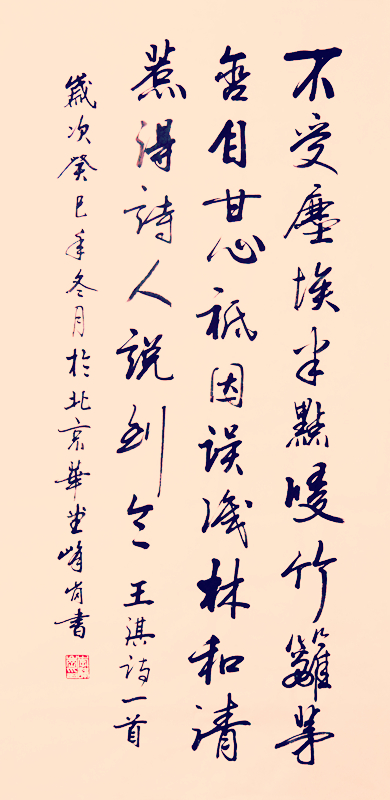 不受塵埃半點侵竹籬茅
舍自甘心祗因誤識林和清
惹得詩人說到今 王淇詩一首
歲次癸巳年冬月於北京華堂峰書